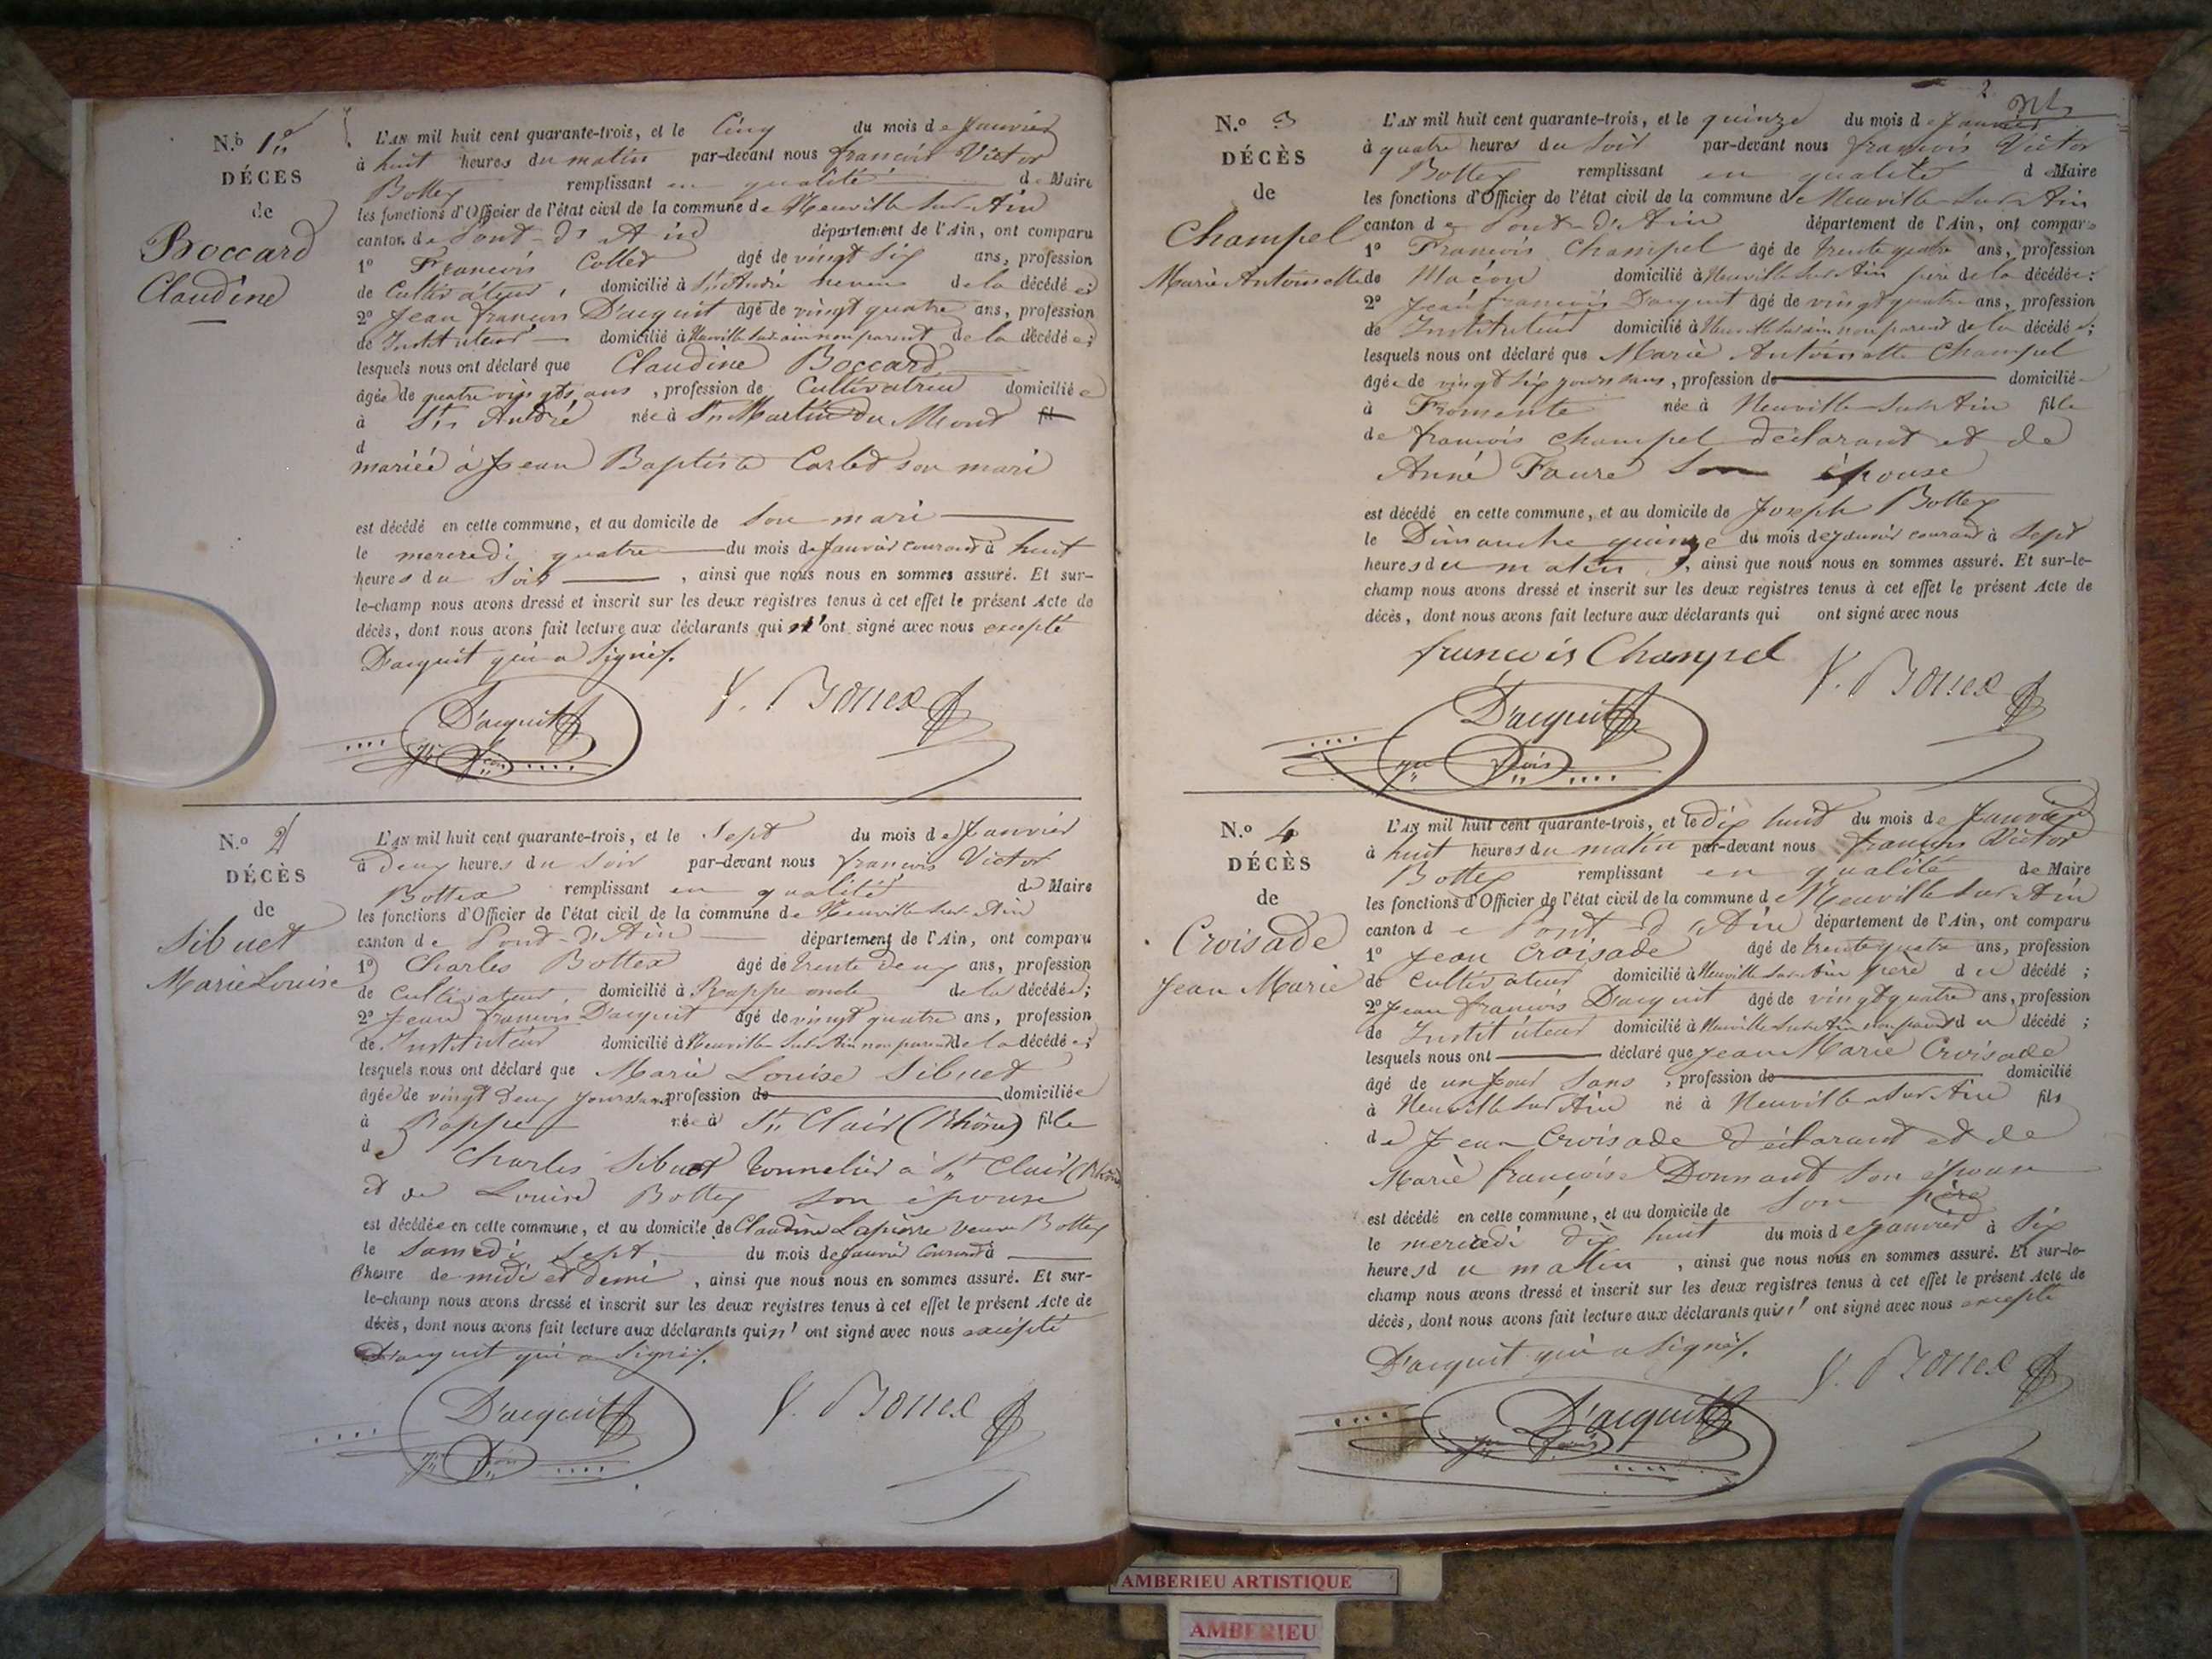 N.o 1er
DÉCÈS
de
Boccard
Claudine
L'AN mil huit cent quarante-trois, et le Cinq du mois de Janvier
à huit heures du matin par-devant nous françois Victor
Bottex remplissant en qualité de Maire
les fonctions d'Officier de l'état civil de la commune de Neuville sur Ain
canton de Pont-d'Ain département de l'Ain, ont comparu
1o François Collet âgé de vingt six ans, profession
de Cultivateur, domicilié à St André neveu de la décédée;
2o Jean françois D'acquit âgé de vingt quatre ans, profession
de Instituteur domicilié à Neuville sur ain non parent de la décédée;
lesquels nous ont déclaré que Claudine Boccard
âgée de quatre vingts ans, profession de Cultivatrice domiciliée
à St André née à St Martin du Mont fil
d
mariée à Jean Baptiste Carlet son mari
est décédé en cette commune, et au domicile de son mari
le mercredi quatre du mois de Janvier courant à huit
heures du soir, ainsi que nous nous en sommes assuré. Et sur-
le-champ nous avons dressé et inscrit sur les deux registres tenus à cet effet le présent Acte de
décès, dont nous avons fait lecture aux déclarants qui n'ont signé avec nous excepté
D'acquit qui a signé.
D'acquit V. Bottex
N.o 2
DÉCÈS
de
Sibuet
Marie Louise
L'AN mil huit cent quarante-trois, et le Sept du mois de Janvier
à deux heures du soir par-devant nous françois Victor
Bottex remplissant en qualité de Maire
les fonctions d'Officier de l'état civil de la commune de Neuville sur Ain
canton de Pont-d'Ain département de l'Ain, ont comparu
1o Charles Bottex âgé de trente deux ans, profession
de cultivateur, domicilié à Rappe oncle de la décédée;
2o Jean françois D'acquit âgé de vingt quatre ans, profession
de Instituteur domicilié à Neuville sur Ain non parent de la décédée;
lesquels nous ont déclaré que Marie Louise Sibuet
âgée de vingt deux jours sans profession de domiciliée
à Rappe née à St Clair (Rhône) fille
de Charles Sibuet tonnelier à St Clair (Rhône)
et de Louise Bottex son épouse
est décédée en cette commune, et au domicile de Claudine Lapierre veuve Bottex
le samedi sept du mois de Janvier courant à
heure de midi et demi, ainsi que nous nous en sommes assuré. Et sur-
le-champ nous avons dressé et inscrit sur les deux registres tenus à cet effet le présent Acte de
décès, dont nous avons fait lecture aux déclarants qui n'ont signé avec nous excepté
D'acquit qui a signé.
D'acquit V. Bottex
2
N.o 3
DÉCÈS
de
Champel
Marie Antoinette
L'AN mil huit cent quarante-trois, et le quinze du mois de Janvier
à quatre heures du soir par-devant nous françois Victor
Bottex remplissant en qualité de Maire
les fonctions d'Officier de l'état civil de la commune de Neuville sur Ain
canton de Pont-d'Ain département de l'Ain, ont comparu
1o François Champel âgé de trente quatre ans, profession
de Maçon domicilié à Neuville sur Ain père de la décédée;
2o Jean françois D'acquit âgé de vingt quatre ans, profession
de Instituteur domicilié à Neuville sur ain non parent de la décédée;
lesquels nous ont déclaré que Marie Antoinette Champel
âgée de vingt six jours sans, profession de domicilié
à Fromente née à Neuville sur Ain fille
de françois Champel déclarant et de
Anne Faure son épouse
est décédé en cette commune, et au domicile de Joseph Bottex
le Dimanche quinze du mois de janvier courant à sept
heures du matin, ainsi que nous nous en sommes assuré. Et sur-le-
champ nous avons dressé et inscrit sur les deux registres tenus à cet effet le présent Acte de
décès, dont nous avons fait lecture aux déclarants qui ont signé avec nous
françois Champel V. Bottex
D'acquit
N.o 4
DÉCÈS
de
Croisade
Jean Marie
L'AN mil huit cent quarante-trois, et le dix huit du mois de Janvier
à huit heures du matin par-devant nous françois Victor
Bottex remplissant en qualité de Maire
les fonctions d'Officier de l'état civil de la commune de Neuville sur Ain
canton de Pont d'Ain département de l'Ain, ont comparu
1o Jean Croisade âgé de trente quatre ans, profession
de cultivateur domicilié à Neuville sur Ain père du décédé;
2o Jean françois D'acquit âgé de vingt quatre ans, profession
de Instituteur domicilié à Neuville sur Ain non parent du décédé;
lesquels nous ont déclaré que Jean Marie Croisade
âgé de un jour sans, profession de domicilié
à Neuville sur Ain né à Neuville sur Ain fils
de Jean Croisade déclarant et de
Marie françoise Donnant son épouse
est décédé en cette commune, et au domicile de son père
le mercredi dix huit du mois de janvier à six
heures du matin, ainsi que nous nous en sommes assuré. Et sur-le-
champ nous avons dressé et inscrit sur les deux registres tenus à cet effet le présent Acte de
décès, dont nous avons fait lecture aux déclarants qui n'ont signé avec nous excepté
D'acquit qui a signé.
D'acquit V. Bottex
AMBERIEU ARTISTIQUE
AMBERIEU